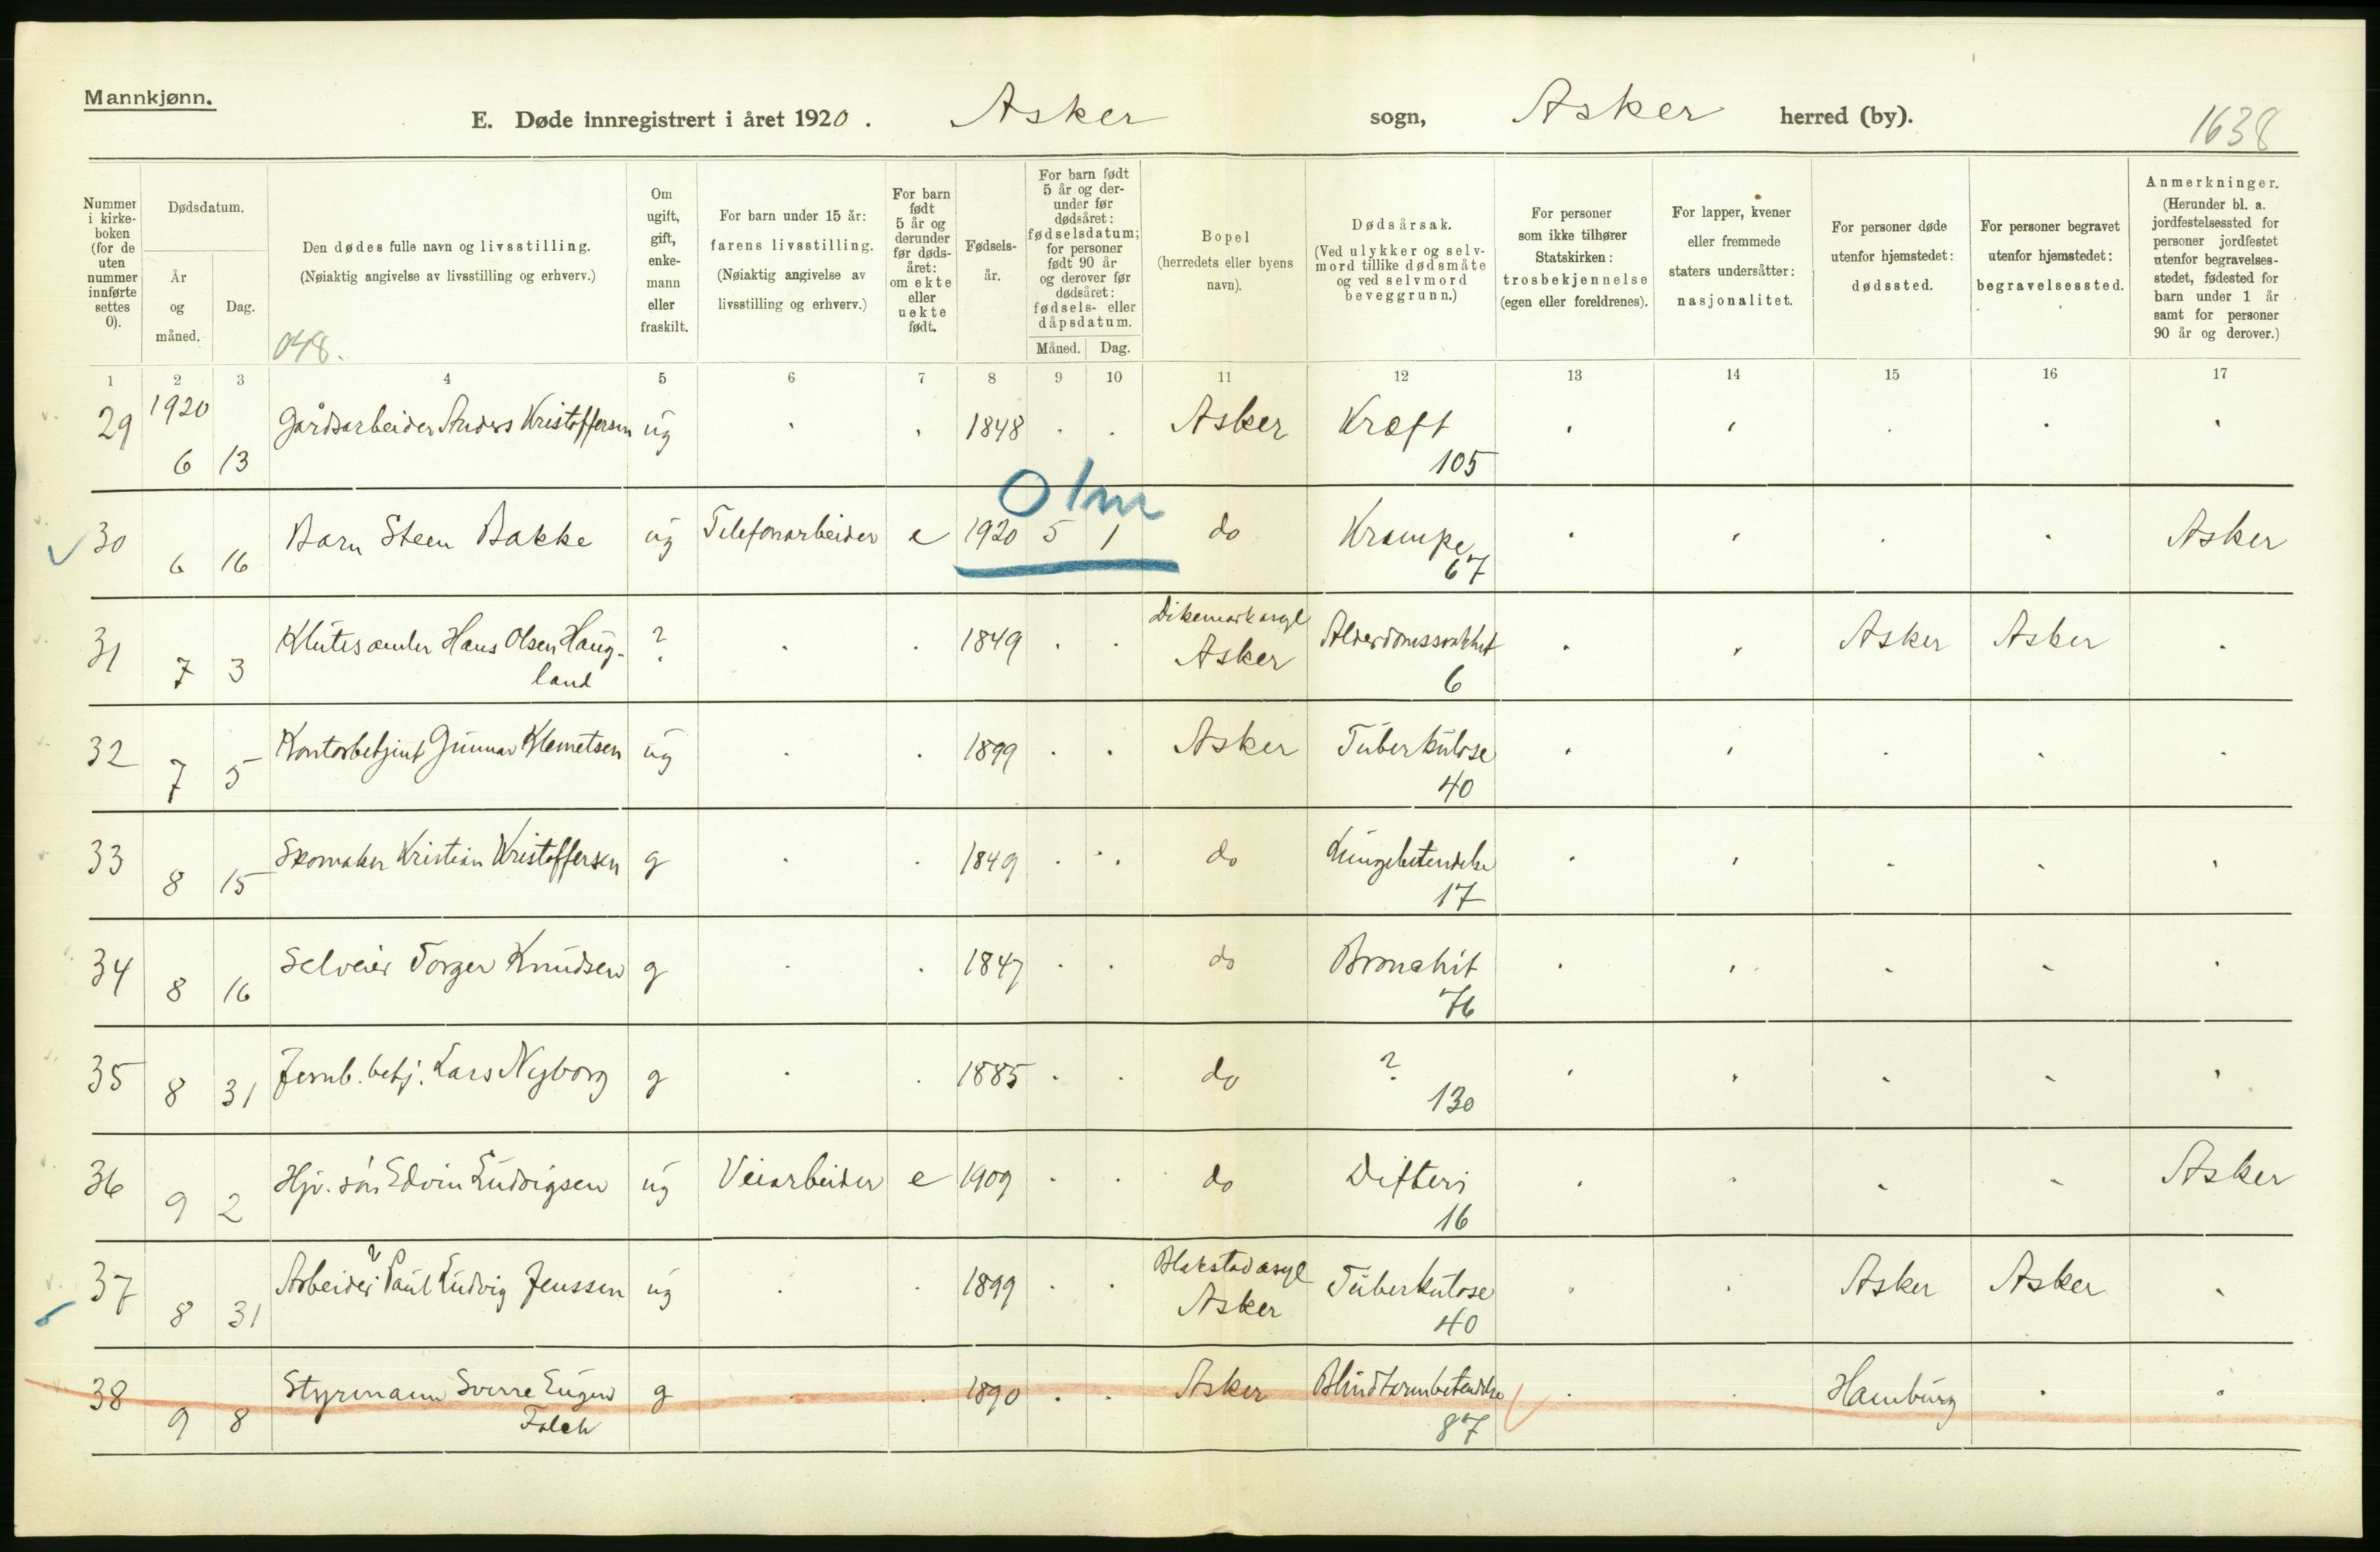 Mannkjønn.
E. Døde innregistrert i året 1920. Asker sogn, Asker herred (by). 1638
Nummer i kirke-boken (for de uten nummer innførte settes 0).
Dødsdatum.
År og måned.
Dag.
Den dødes fulle navn og livsstilling.
(Nøiaktig angivelse av livsstilling og erhverv.)
048.
Om ugift, gift, enke-mann eller fraskilt.
For barn under 15 år:
farens livsstilling.
(Nøiaktig angivelse av livsstilling og erhverv.)
For barn født 5 år og derunder før døds-året: om ekte eller uekte født.
Fødsels-år.
For barn født 5 år og der-under før dødsåret: fødselsdatum; for personer født 90 år og derover før dødsåret: fødsels- eller dåpsdatum.
Måned. Dag.
Bopel
(herredets eller byens navn).
Dødsårsak.
(Ved ulykker og selv-mord tillike dødsmåte og ved selvmord beveggrunn.)
For personer som ikke tilhører Statskirken: trosbekjennelse (egen eller foreldrenes).
For lapper, kvener eller fremmede staters undersåtter: nasjonalitet.
For personer døde utenfor hjemstedet: dødssted.
For personer begravet utenfor hjemstedet: begravelsessted.
Anmerkninger.
(Herunder bl. a. jordfestelsessted for personer jordfestet utenfor begravelses-stedet, fødested for barn under 1 år samt for personer 90 år og derover.)
1 2 3 4 5 6 7 8 9 10 11 12 13 14 15 16 17
29 1920 6 13 Gårdsarbeider Anders Kristoffersen ug 1848 Asker Kræft 105
0 1 m
30 6 16 Barn Steen Bakke ug Telefonarbeider e 1920 5 1 do Krampe 67 Asker
31 7 3 Klutesamler Hans Olsen Haug-land ? 1849 Dikemark asyl Asker Alderdomssvakhet 6 Asker Asker
32 7 5 Kontorbetjent Gunnar Klemetsen ug 1899 Asker Tuberkulose 40
33 8 15 Skomaker Kristian Kristoffersen g 1849 do Lungebetendelse 17
34 8 16 Selveier Torger Knudsen g 1847 do Bronchit 76
35 8 31 Jernb. betj. Lars Nyborg g 1885 do ? 130
36 9 2 Hjv. søn Edvin Ludvigsen ug Veiarbeider e 1909 do Difteri 16 Asker
37 8 31 Arbeider ? Paul Ludvig Jenssen ug 1899 Blakstad asyl Asker Tuberkulose 40 Asker Asker
38 9 8 Styrmann Sverre Eugen Falch g 1890 Asker Blindtarmbetendelse 87 Hamburg